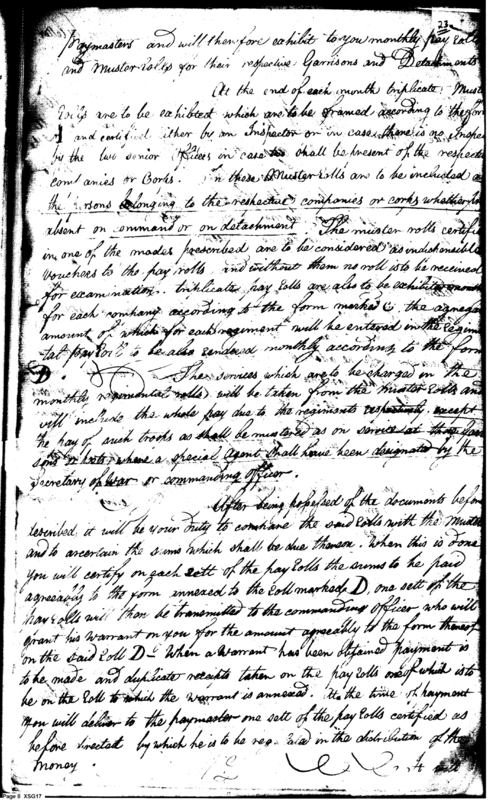 23
Paymasters and will therefore exhibit to you monthly pay Rolls
and Muster Rolls for their respective Garrisons and Detachments
At the end of each month triplicate Muster
Rolls are to be exhibited which are to be framed according to the form
and certified either by an Inspector or in case there is no Inspec
by the two senior officers in case shall be present of the respect
companies or Corks. In these Muster Rolls are to be included a
the persons belonging to the respective companies or corps whether
absent on command or on detachment. The muster rolls certifi
in one of the modes prescribed are to be considered as indishensible
vouchers to the pay rolls and without them no roll is to be received
for examination. triplicate pay Rolls are also to be exhibited
for each company according to the form marked C the aggrega
amount of which for each regiment will be entered in the Regim
tal pay Roll to be also rendered monthly according to the form
D The services which are to be charged in the
monthly regimental rolls will be taken from the Muster Rolls and
will include the whole pay due to the regiments respectively except
the pay of such troops as shall be mustered as on service at
or posts where a special Agent shall have been designated by the
Secretary of war or commanding officer.
After being possessed of the documents before
described it will be your duty to compare the said Rolls with the Muster
and to ascertain the sums which shall be due thereon. When this is done
you will certify on each sett of the pay Rolls the sums to be paid
agreeably to the form annexed to the Roll marked D, one sett of the
pay Rolls will then be transmitted to the commanding officer who will
grant his warrant on you for the amount agreeably to the form thereof
on the said Roll D – When a warrant has been obtained payment is
to be made and duplicate receipts taken on the pay Rolls one of which is to
be on the Roll to which the warrant is annexed. At the time of payment
you will deliver to the paymaster one sett of the pay Rolls certified as
before directed by which he is to be regulated in the distribution of the
money.
Page 8 XSG17